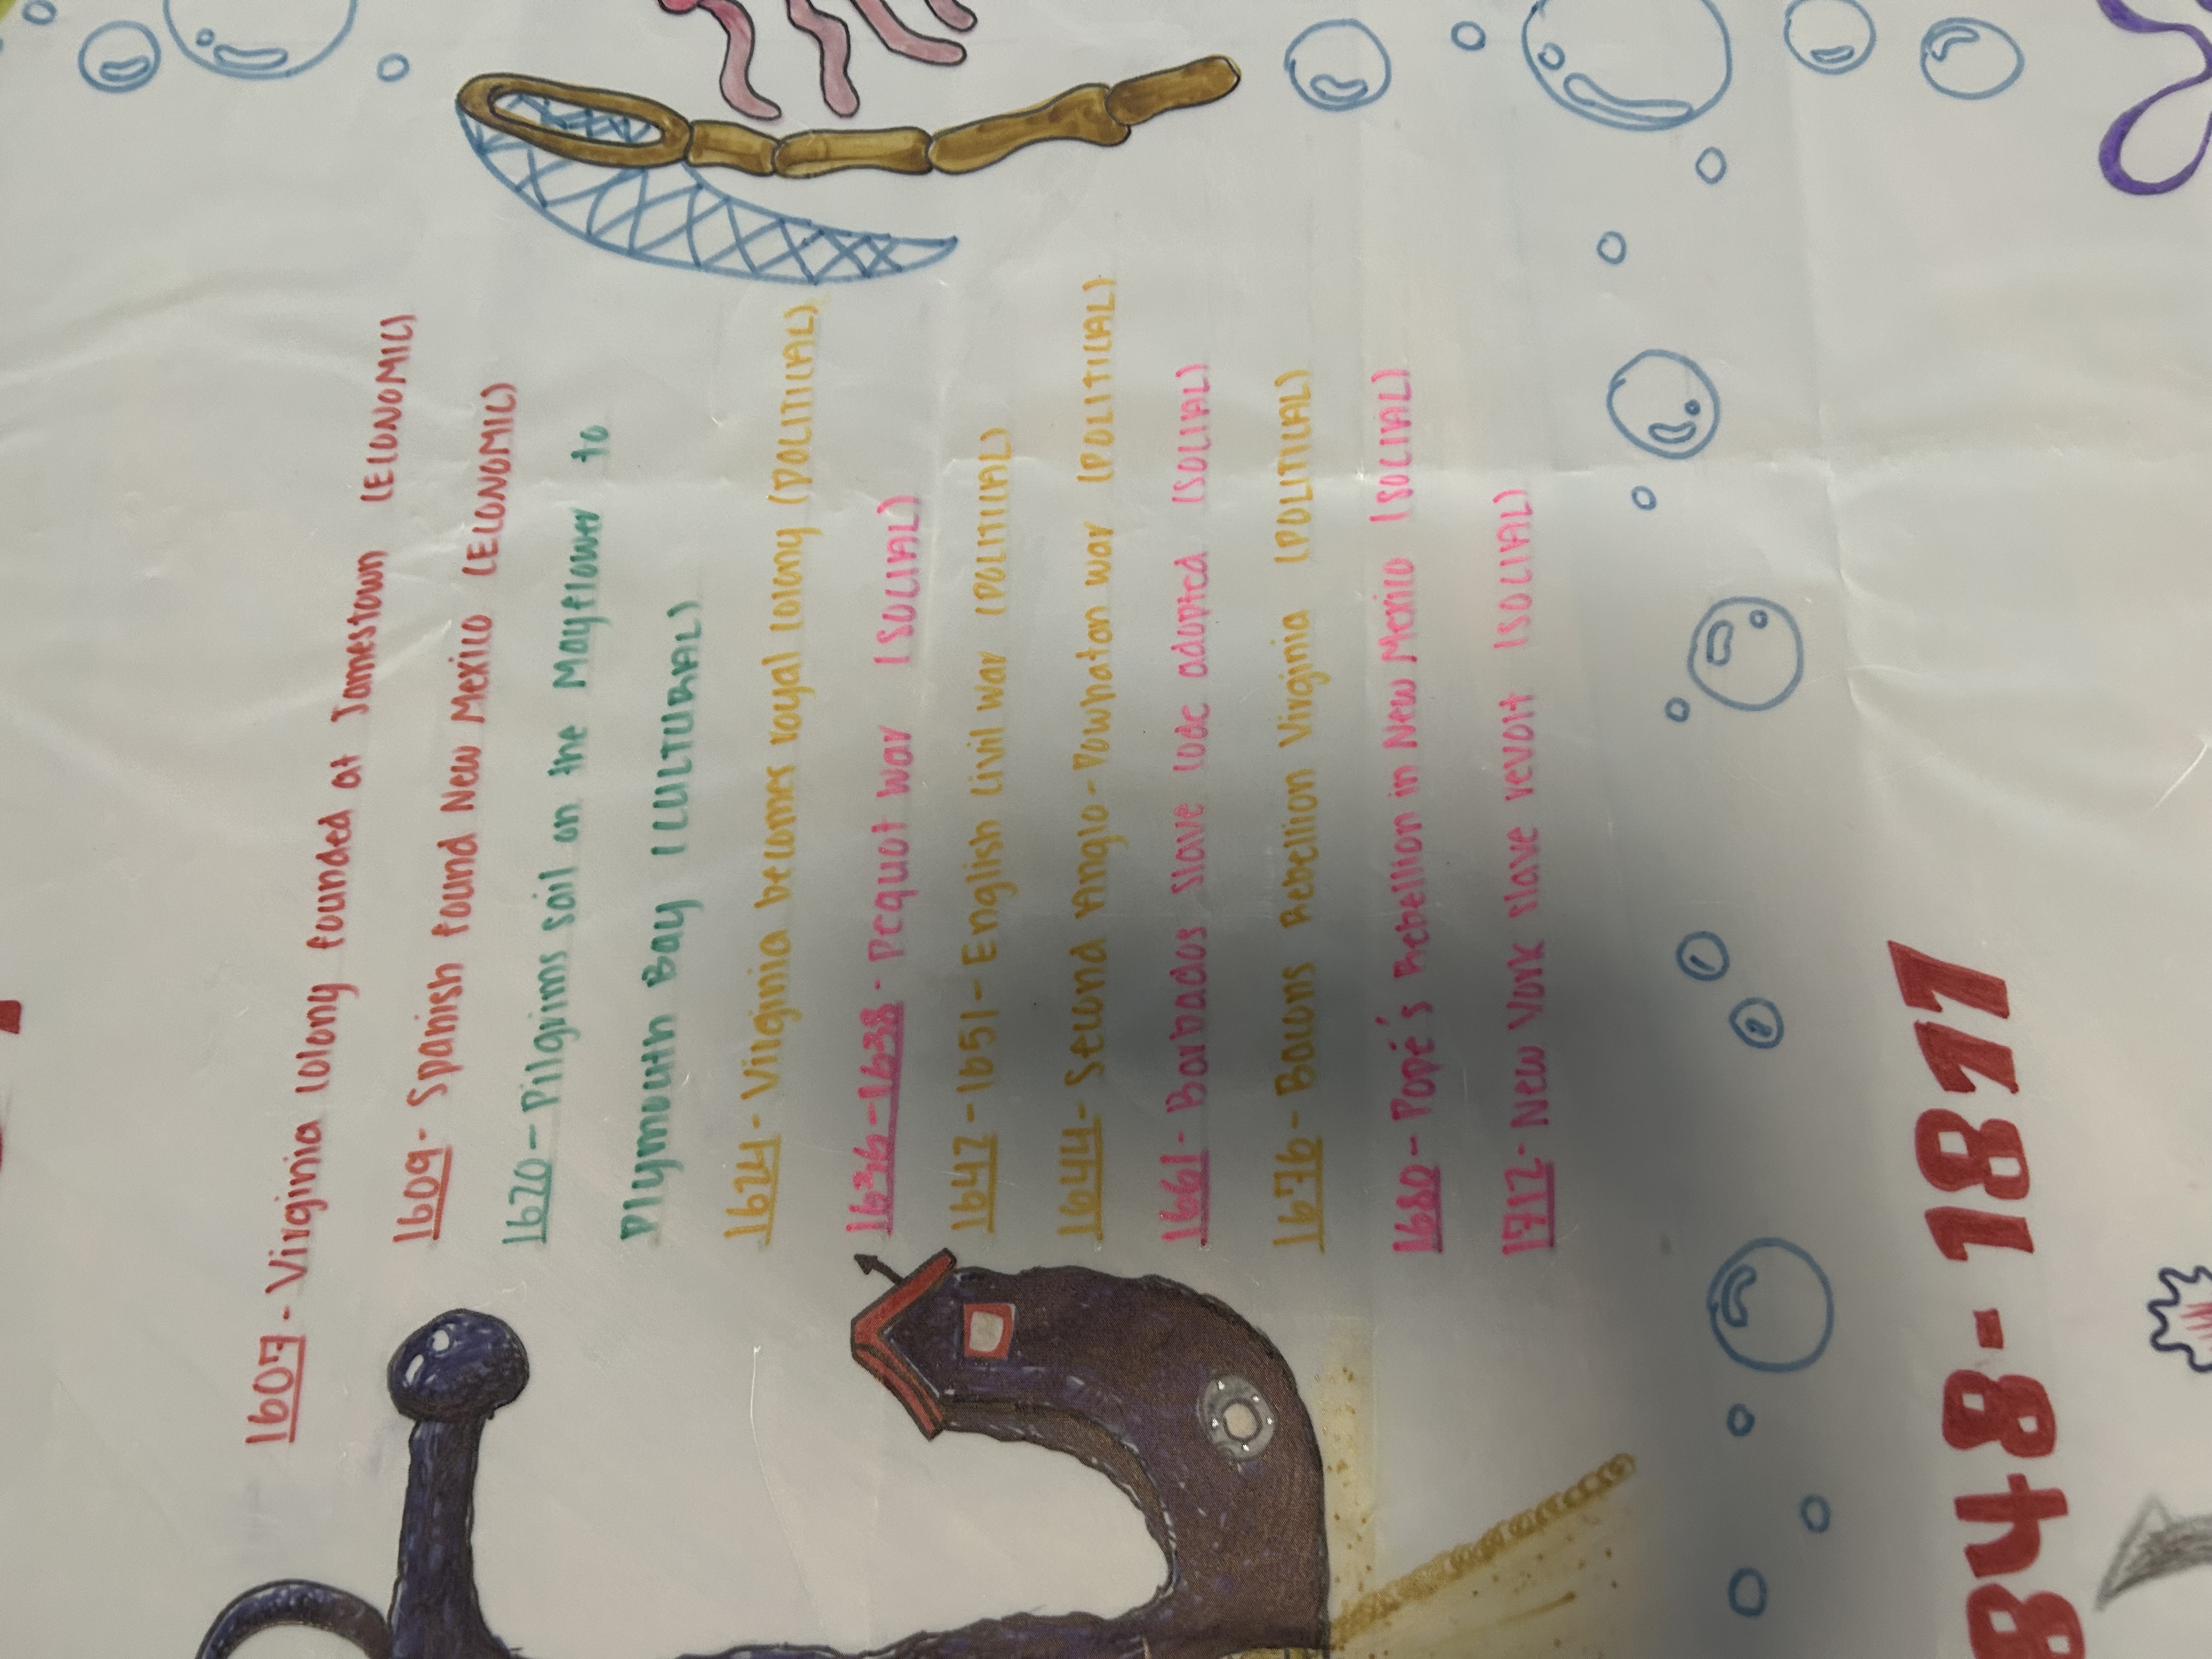 1607 - Virginia colony founded at Jamestown (ECONOMIC)
1609 - Spanish found New Mexico (ECONOMIC)
1620 - Pilgrims sail on the Mayflower to
Plymouth Bay (CULTURAL)
1624 - Virginia becomes royal colony (POLITICAL)
1636-1638 - Pequot war (SOCIAL)
1642-1651 - English Civil war (POLITICAL)
1644 - Second Anglo-Powhaton war (POLITICAL)
1661 - Barbados slave code adopted (SOCIAL)
1676 - Bacons Rebellion Virginia (POLITICAL)
1680 - Popé's Rebellion in New Mexico (SOCIAL)
1712 - New York slave revolt (SOCIAL)
848-1877